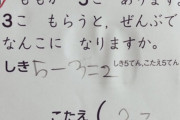 3こ あります。
3こ もらうと、ぜんぶで
なんこに なりますか。
しき5てん、こたえ5てん
しき 5-3=2
こたえ(